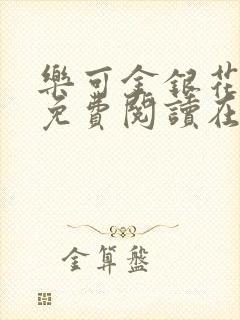 樂可金銀花
免費閱讀在
金算盤